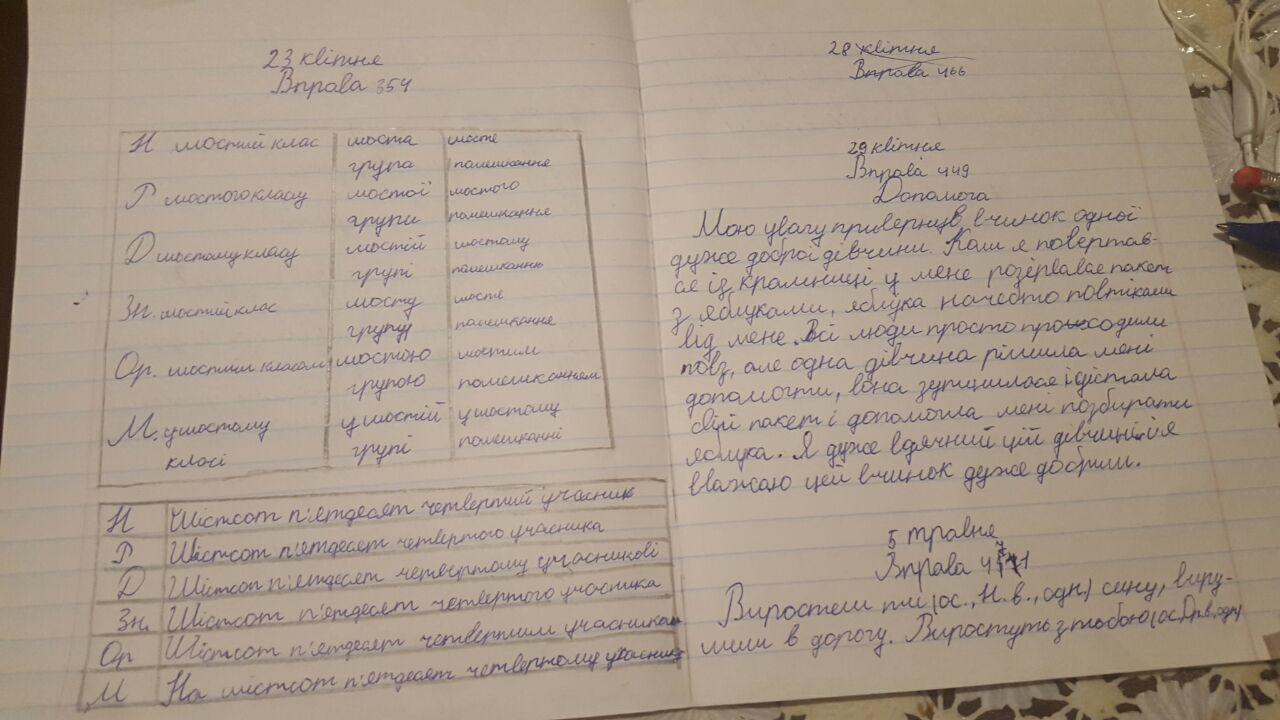 23 квітня
Вправа 354
Н шостий клас шоста шосте
група помешкання
Р шостого класу шостої шостого
групи помешкання
Д шостому класу шостій шостому
групі помешканню
Зн. шостий клас шосту шосте
групу помешкання
Ор. шостим класом шостою шостим
групою помешканням
М. у шостому у шостій у шостому
класі групі помешканні
Н Шістсот п'ятдесят четвертий учасник
Р Шістсот п'ятдесят четвертого учасника
Д Шістсот п'ятдесят четвертому учасникові
Зн. Шістсот п'ятдесят четвертого учасника
Ор Шістсот п'ятдесят четвертим учасником
М На шістсот п'ятдесят четвертому
28 квітня
Вправа 466
29 квітня
Вправа 449
Допомога
Мою увагу привернув вчинок одної
дуже доброї дівчини. Коли я повертав-
ся із крамниці у мене розірвався пакет
з яблуками, яблука начебто повтікали
від мене. Всі люди просто проходили
повз, але одна дівчина рішила мені
допомогти, вона зупинилася і дістала
свій пакет і допомогла мені позбирати
яблука. Я дуже вдячний цій дівчині і я
вважаю цей вчинок дуже добрим.
5 травня
Вправа
Виростеш ти (ос., Н.в., одн) сину, виру-
шиш в дорогу. Виростуть з тобою (ос. Ор.в, одн)